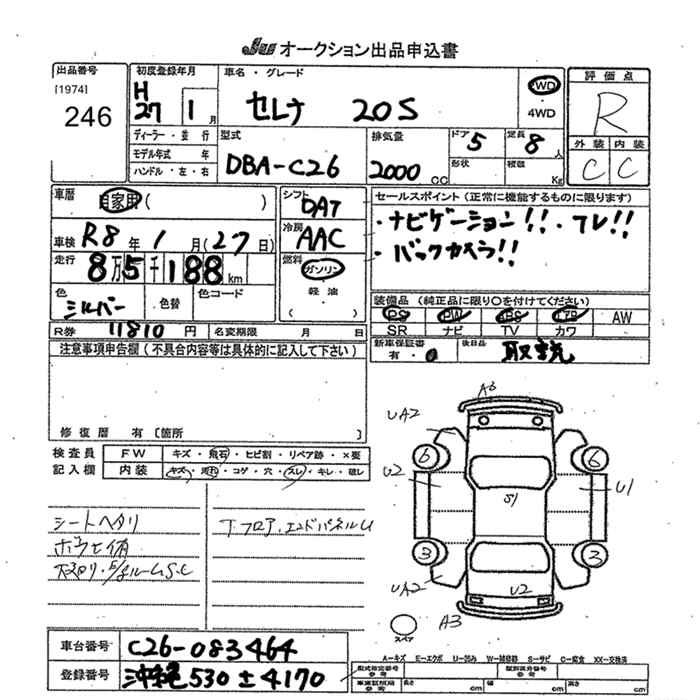 JU オークション出品申込書
出品番号
[1974]
246
初度登録年月
H
27 1月
ディーラー・並 行
モデル年式 年
ハンドル・左・右
車名・グレード
セレナ 20S
2WD
4WD
評価点
R
外装 内装
C C
型式
DBA-C26
排気量
2000 cc
ドア 5
形状
定員 8人
積載 Kg
車歴
自家用 ( )
車検 R8年 1月(27日)
走行 8万5千188km
色 シルバー
色替
色コード
R券 11810円
名変期限 月 日
シフト
DAT
冷房
AAC
燃料
ガソリン
軽油
( )
セールスポイント(正常に機能するものに限ります)
・ナビゲーション!!・フレ!!
・バックカメラ!!
装備品(純正品に限り○を付けてください)
PS PW ABS エアB AW
SR ナビ TV カワ
新車保証書
有・
後日品
取説
注意事項申告欄(不具合内容等は具体的に記入して下さい)
修復歴 有〔箇所
検査員
記入欄
FW キズ・飛石・ヒビ割・リペア跡・×要
内装 キズ・汚れ・コゲ・穴・スレ・キレ・破レ
シートヘタリ
下フロア、エンドパネルU
A3
UA2
6
6
U2
S1
U1
3
3
UA2
U2
A3
スペア
車台番号 C26-083464
登録番号 沖縄530 ± 4170
A―キズ E―エクボ U―凹み W―補修跡 S―サビ C―腐食 XX―交換済
型式指定番号
参考
類別区分番号
参考
長さ cm
幅 cm
高さ cm